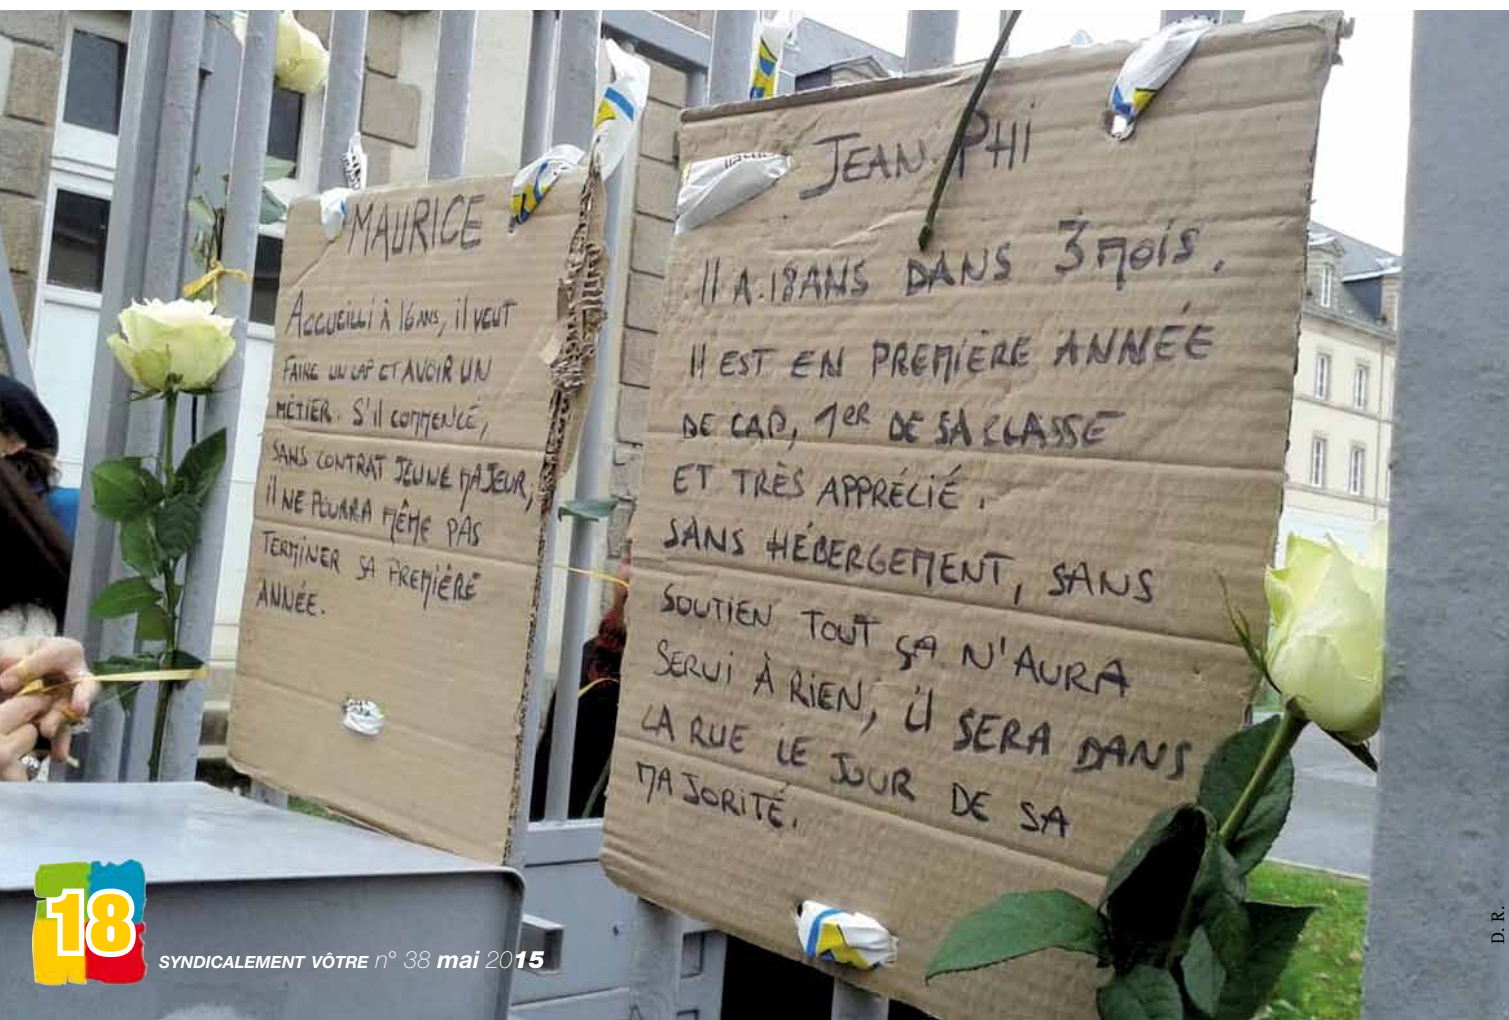 MAURICE
ACCUEILLI À 16 ANS, il VEUT
FAIRE UN CAP ET AVOIR UN
MÉTIER. S'il COMMENCE,
SANS CONTRAT JEUNE MAJEUR,
il NE POURRA MÊME PAS
TERMINER SA PREMIÈRE
ANNÉE.
JEAN PHI
Il A 18 ANS DANS 3 MOIS.
Il EST EN PREMIÈRE ANNÉE
DE CAP, 1ER DE SA CLASSE
ET TRÈS APPRÉCIÉ.
SANS HÉBERGEMENT, SANS
SOUTIEN TOUT ÇA N'AURA
SERVI À RIEN, il SERA DANS
LA RUE LE JOUR DE SA
MAJORITÉ.
18
SYNDICALEMENT VÔTRE n° 38 mai 2015
D. R.